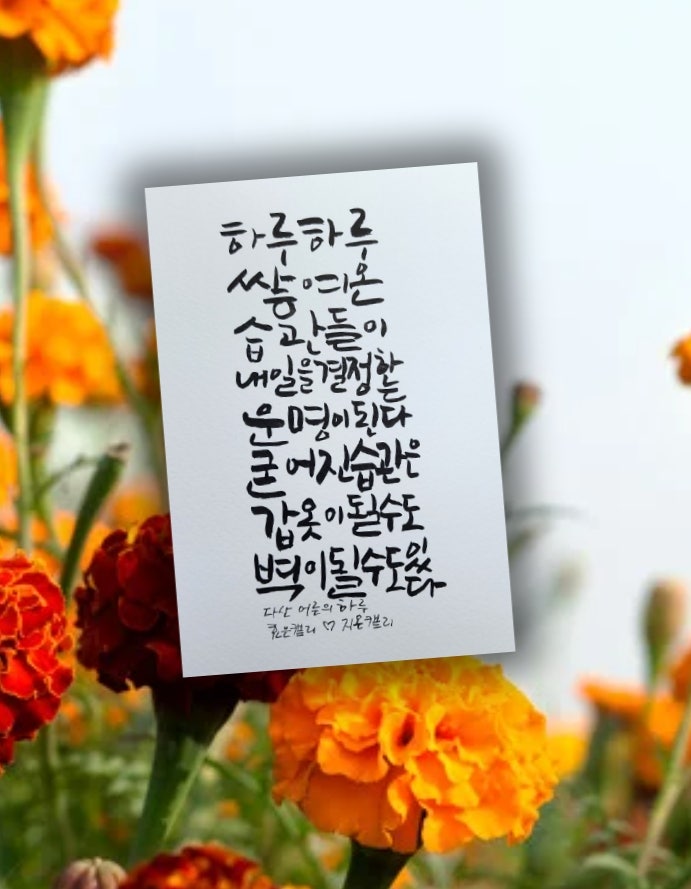 하루하루
쌓여온
습관들이
내일을결정하는
운명이된다
굳어진습관은
갑옷이될수도
벽이될수도있다
다산 어른의 하루
좋은캘리 ♡ 지온캘리